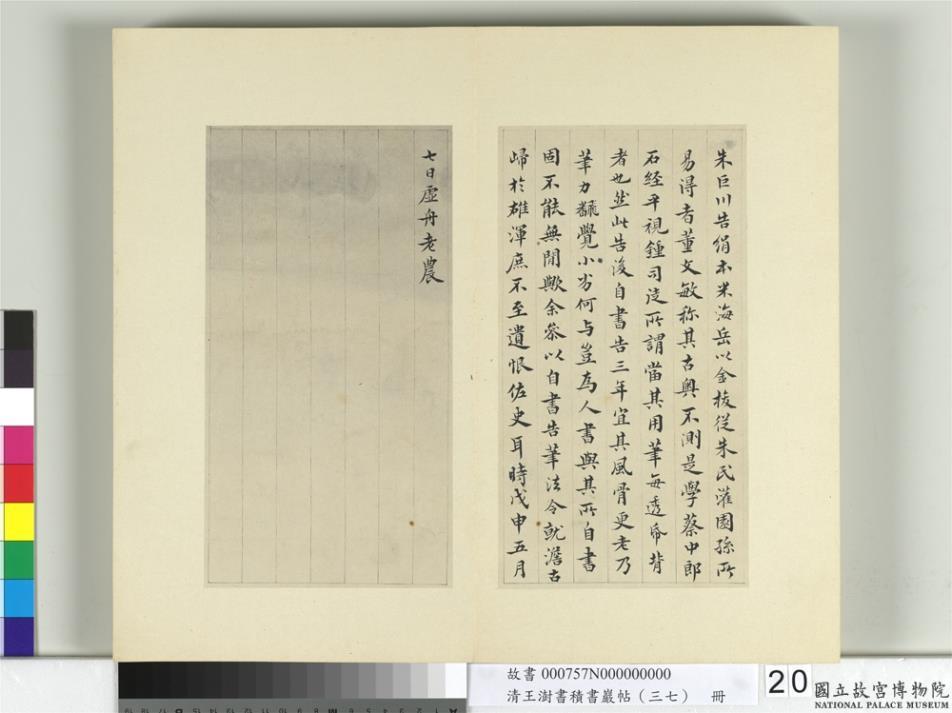 朱巨川告絹本米海岳以金梭從朱氏灌園孫所
易得者董文敏称其古奧不測是學蔡中郎
石經平視鍾司徒所謂當其用筆每透帋背
者也然此告後自書告三年宜其風骨更老乃
筆力飜覺小劣何与豈為人書與其所自書
固不能無閒歟余叅以自書告筆法令就澹古
歸於雄渾庶不至遺恨佐史耳時戊申五月
七日虛舟老農
故書 000757N000000000
清王澍書積書巖帖（三七） 冊
20
國立故宮博物院
NATIONAL PALACE MUSEUM